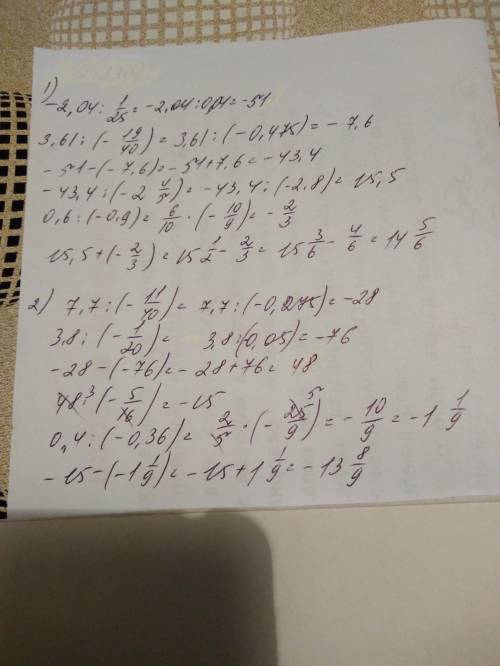 1)
-2,04 : 1/25 = -2,04 : 0,04 = -51
3,61 : (-19/40) = 3,61 : (-0,475) = -7,6
-51-(-7,6) = -51+7,6 = -43,4
-43,4 : (-2 4/5) = -43,4 : (-2,8) = 15,5
0,6 : (-0,9) = 6/10 · (-10/9) = -2/3
15,5 + (-2/3) = 15 1/2 - 2/3 = 15 3/6 - 4/6 = 14 5/6
2) 7,7 : (-11/40) = 7,7 : (-0,275) = -28
3,8 : (-1/20) = 3,8 : (0,05) = -76
-28-(-76) = -28+76 = 48
48 3 · (-5/16) = -15
0,4 : (-0,36) = 2/5 · (-25 5/9) = -10/9 = -1 1/9
-15-(-1 1/9) = -15+1 1/9 = -13 8/9